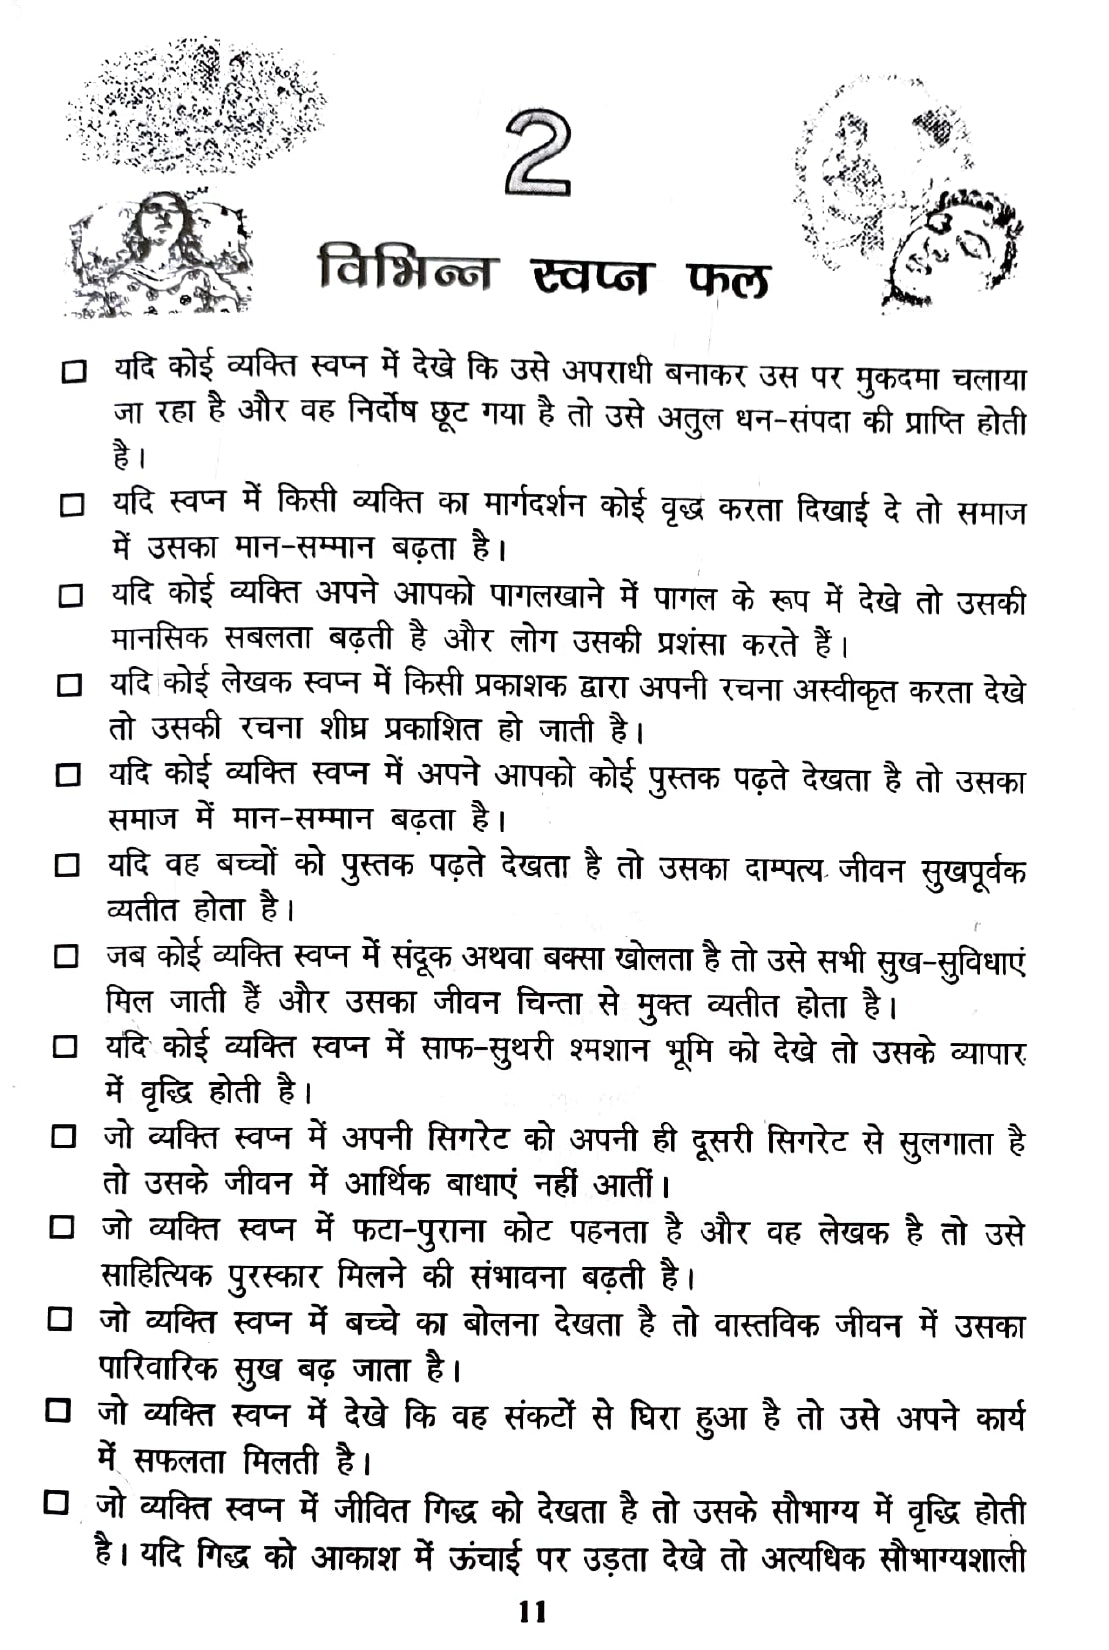 2
विभिन्न स्वप्न फल
□ यदि कोई व्यक्ति स्वप्न में देखे कि उसे अपराधी बनाकर उस पर मुकदमा चलाया
जा रहा है और वह निर्दोष छूट गया है तो उसे अतुल धन-संपदा की प्राप्ति होती
है।
□ यदि स्वप्न में किसी व्यक्ति का मार्गदर्शन कोई वृद्ध करता दिखाई दे तो समाज
में उसका मान-सम्मान बढ़ता है।
□ यदि कोई व्यक्ति अपने आपको पागलखाने में पागल के रूप में देखे तो उसकी
मानसिक सबलता बढ़ती है और लोग उसकी प्रशंसा करते हैं।
□ यदि कोई लेखक स्वप्न में किसी प्रकाशक द्वारा अपनी रचना अस्वीकृत करता देखे
तो उसकी रचना शीघ्र प्रकाशित हो जाती है।
□ यदि कोई व्यक्ति स्वप्न में अपने आपको कोई पुस्तक पढ़ते देखता है तो उसका
समाज में मान-सम्मान बढ़ता है।
□ यदि वह बच्चों को पुस्तक पढ़ते देखता है तो उसका दाम्पत्य जीवन सुखपूर्वक
व्यतीत होता है।
□ जब कोई व्यक्ति स्वप्न में संदूक अथवा बक्सा खोलता है तो उसे सभी सुख-सुविधाएं
मिल जाती हैं और उसका जीवन चिन्ता से मुक्त व्यतीत होता है।
□ यदि कोई व्यक्ति स्वप्न में साफ-सुथरी श्मशान भूमि को देखे तो उसके व्यापार
में वृद्धि होती है।
□ जो व्यक्ति स्वप्न में अपनी सिगरेट को अपनी ही दूसरी सिगरेट से सुलगाता है
तो उसके जीवन में आर्थिक बाधाएं नहीं आतीं।
□ जो व्यक्ति स्वप्न में फटा-पुराना कोट पहनता है और वह लेखक है तो उसे
साहित्यिक पुरस्कार मिलने की संभावना बढ़ती है।
□ जो व्यक्ति स्वप्न में बच्चे का बोलना देखता है तो वास्तविक जीवन में उसका
पारिवारिक सुख बढ़ जाता है।
□ जो व्यक्ति स्वप्न में देखे कि वह संकटों से घिरा हुआ है तो उसे अपने कार्य
में सफलता मिलती है।
□ जो व्यक्ति स्वप्न में जीवित गिद्ध को देखता है तो उसके सौभाग्य में वृद्धि होती
है। यदि गिद्ध को आकाश में ऊंचाई पर उड़ता देखे तो अत्यधिक सौभाग्यशाली
11